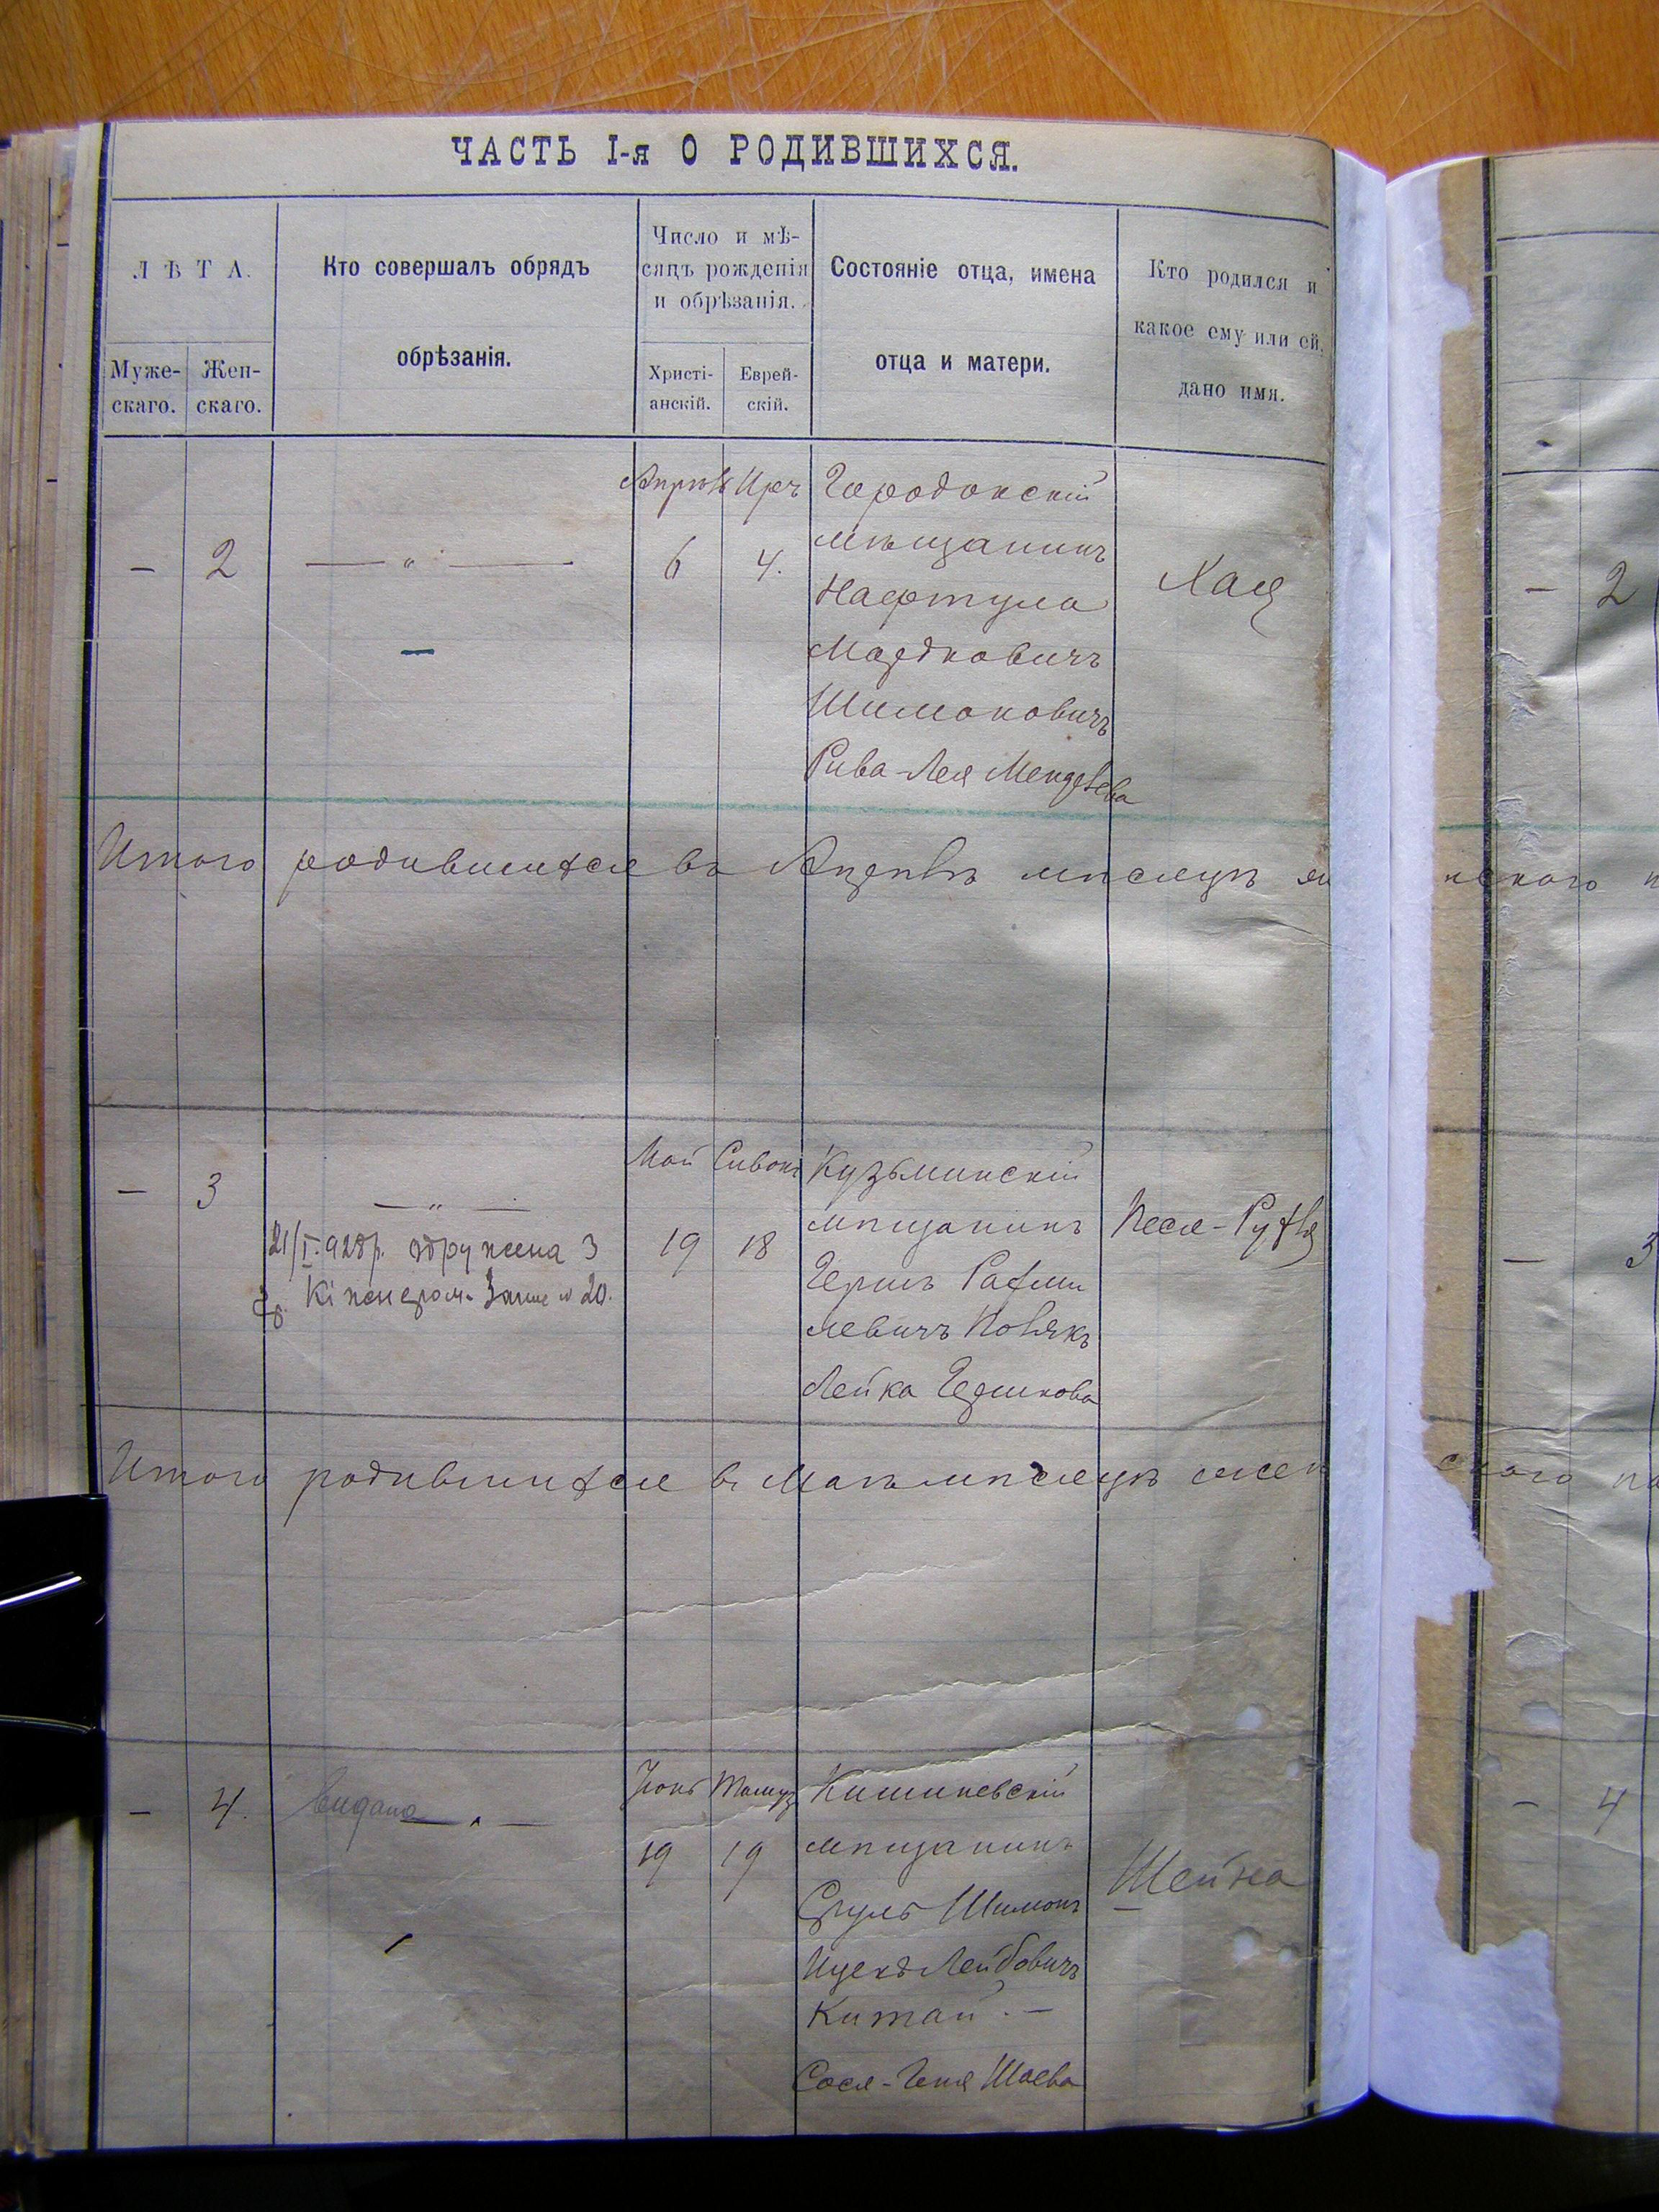 ЧАСТЬ I-я О РОДИВШИХСЯ.
ЛѢТА.
Муже-
скаго.
Жен-
скаго.
Кто совершалъ обрядъ
обрѣзанія.
Число и мѣ-
сяцъ рожденія
и обрѣзанія.
Христі-
анскій.
Еврей-
скій.
Состояніе отца, имена
отца и матери.
Кто родился и
какое ему или ей
дано имя.
Апрѣль Иръ
— 2 — " — 6 4.
Городокскій
мѣщанинъ
Нафтула
Мордковичъ
Шимоновичъ
Рива-Лея Менделева
Хая
— 2
Итого родившихся въ Апрѣлѣ мѣсяцѣ
Май Сивонъ
— 3 — " — 19 18
21/I.928р. одружена з
Кузьминскій
мѣщанинъ
Гершъ Рахми
левичъ Новакъ
Лейка Гершкова
Песя-Рухля
— 3
Итого родившихся въ Маѣ мѣсяцѣ
Іюнь Тамузъ
— 4. видана — " — 19 19
Кишиневскій
мѣщанинъ
Сруль Шимонъ
Ицекъ Лейбовичъ
Китай. —
Сося-Геня Шаева
Шейна
— 4